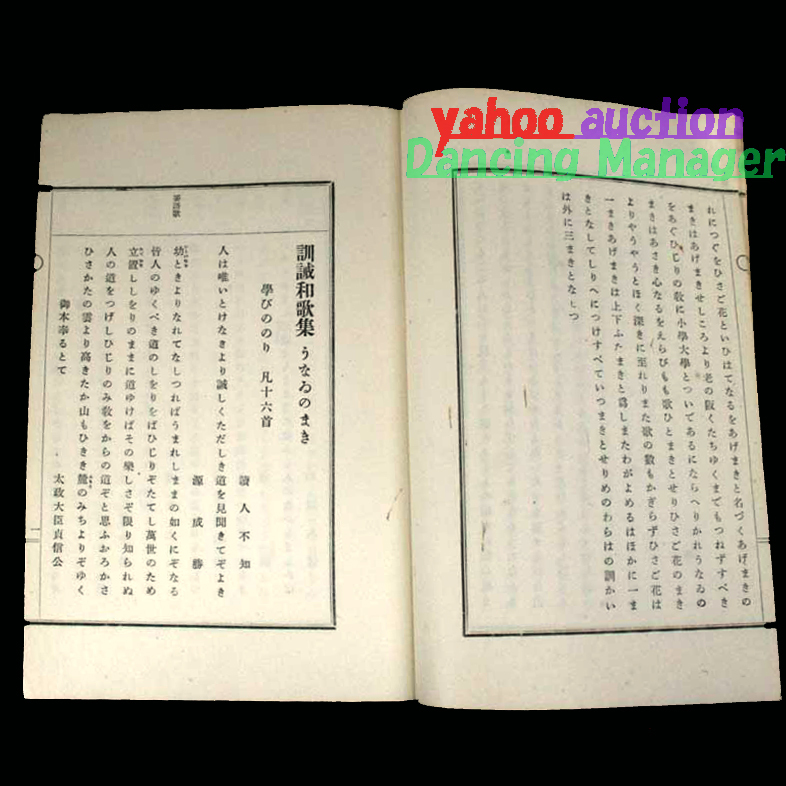 yahoo auction
Dancing Manager
れにつぐをひさご花といひはてなるをあげまきと名づくあげまきの
まきはあげまきせしころより老の阪くたちゆくまでもつねずすべき
をあぐひじりの敎に小學大學とついであるにならへりかれうなゐの
まきはあさき心なるをえらびもも歌ひとまきとせりひさご花のまき
よりやうやうとほく深きに至れりまた歌の數もかぎらずひさご花は
一まきあげまきは上下ふたまきと爲しまたわがよめるはほかに一ま
きとなしてしりへにつけすべていつまきとせりめのわらはの訓かい
は外に三まきとなしつ
訓誡和歌集 うなゐのまき
學びののり 凡十六首
讀人不知
人は唯いとけなきより誠しくただしき道を見聞きてぞよき
源成勝
幼ときよりなれてなしつればうまれしままの如くにぞなる
皆人のゆくべき道のしをりをばひじりぞたてし萬世のため
立置ししをりのままに道ゆけばその樂しさぞ限り知られぬ
人の道をつげしひじりのみ敎をからの道ぞと思ふおろかさ
ひさかたの雲より高きたか山もひきき麓のみちよりぞゆく
御本奉るとて
太政大臣貞信公